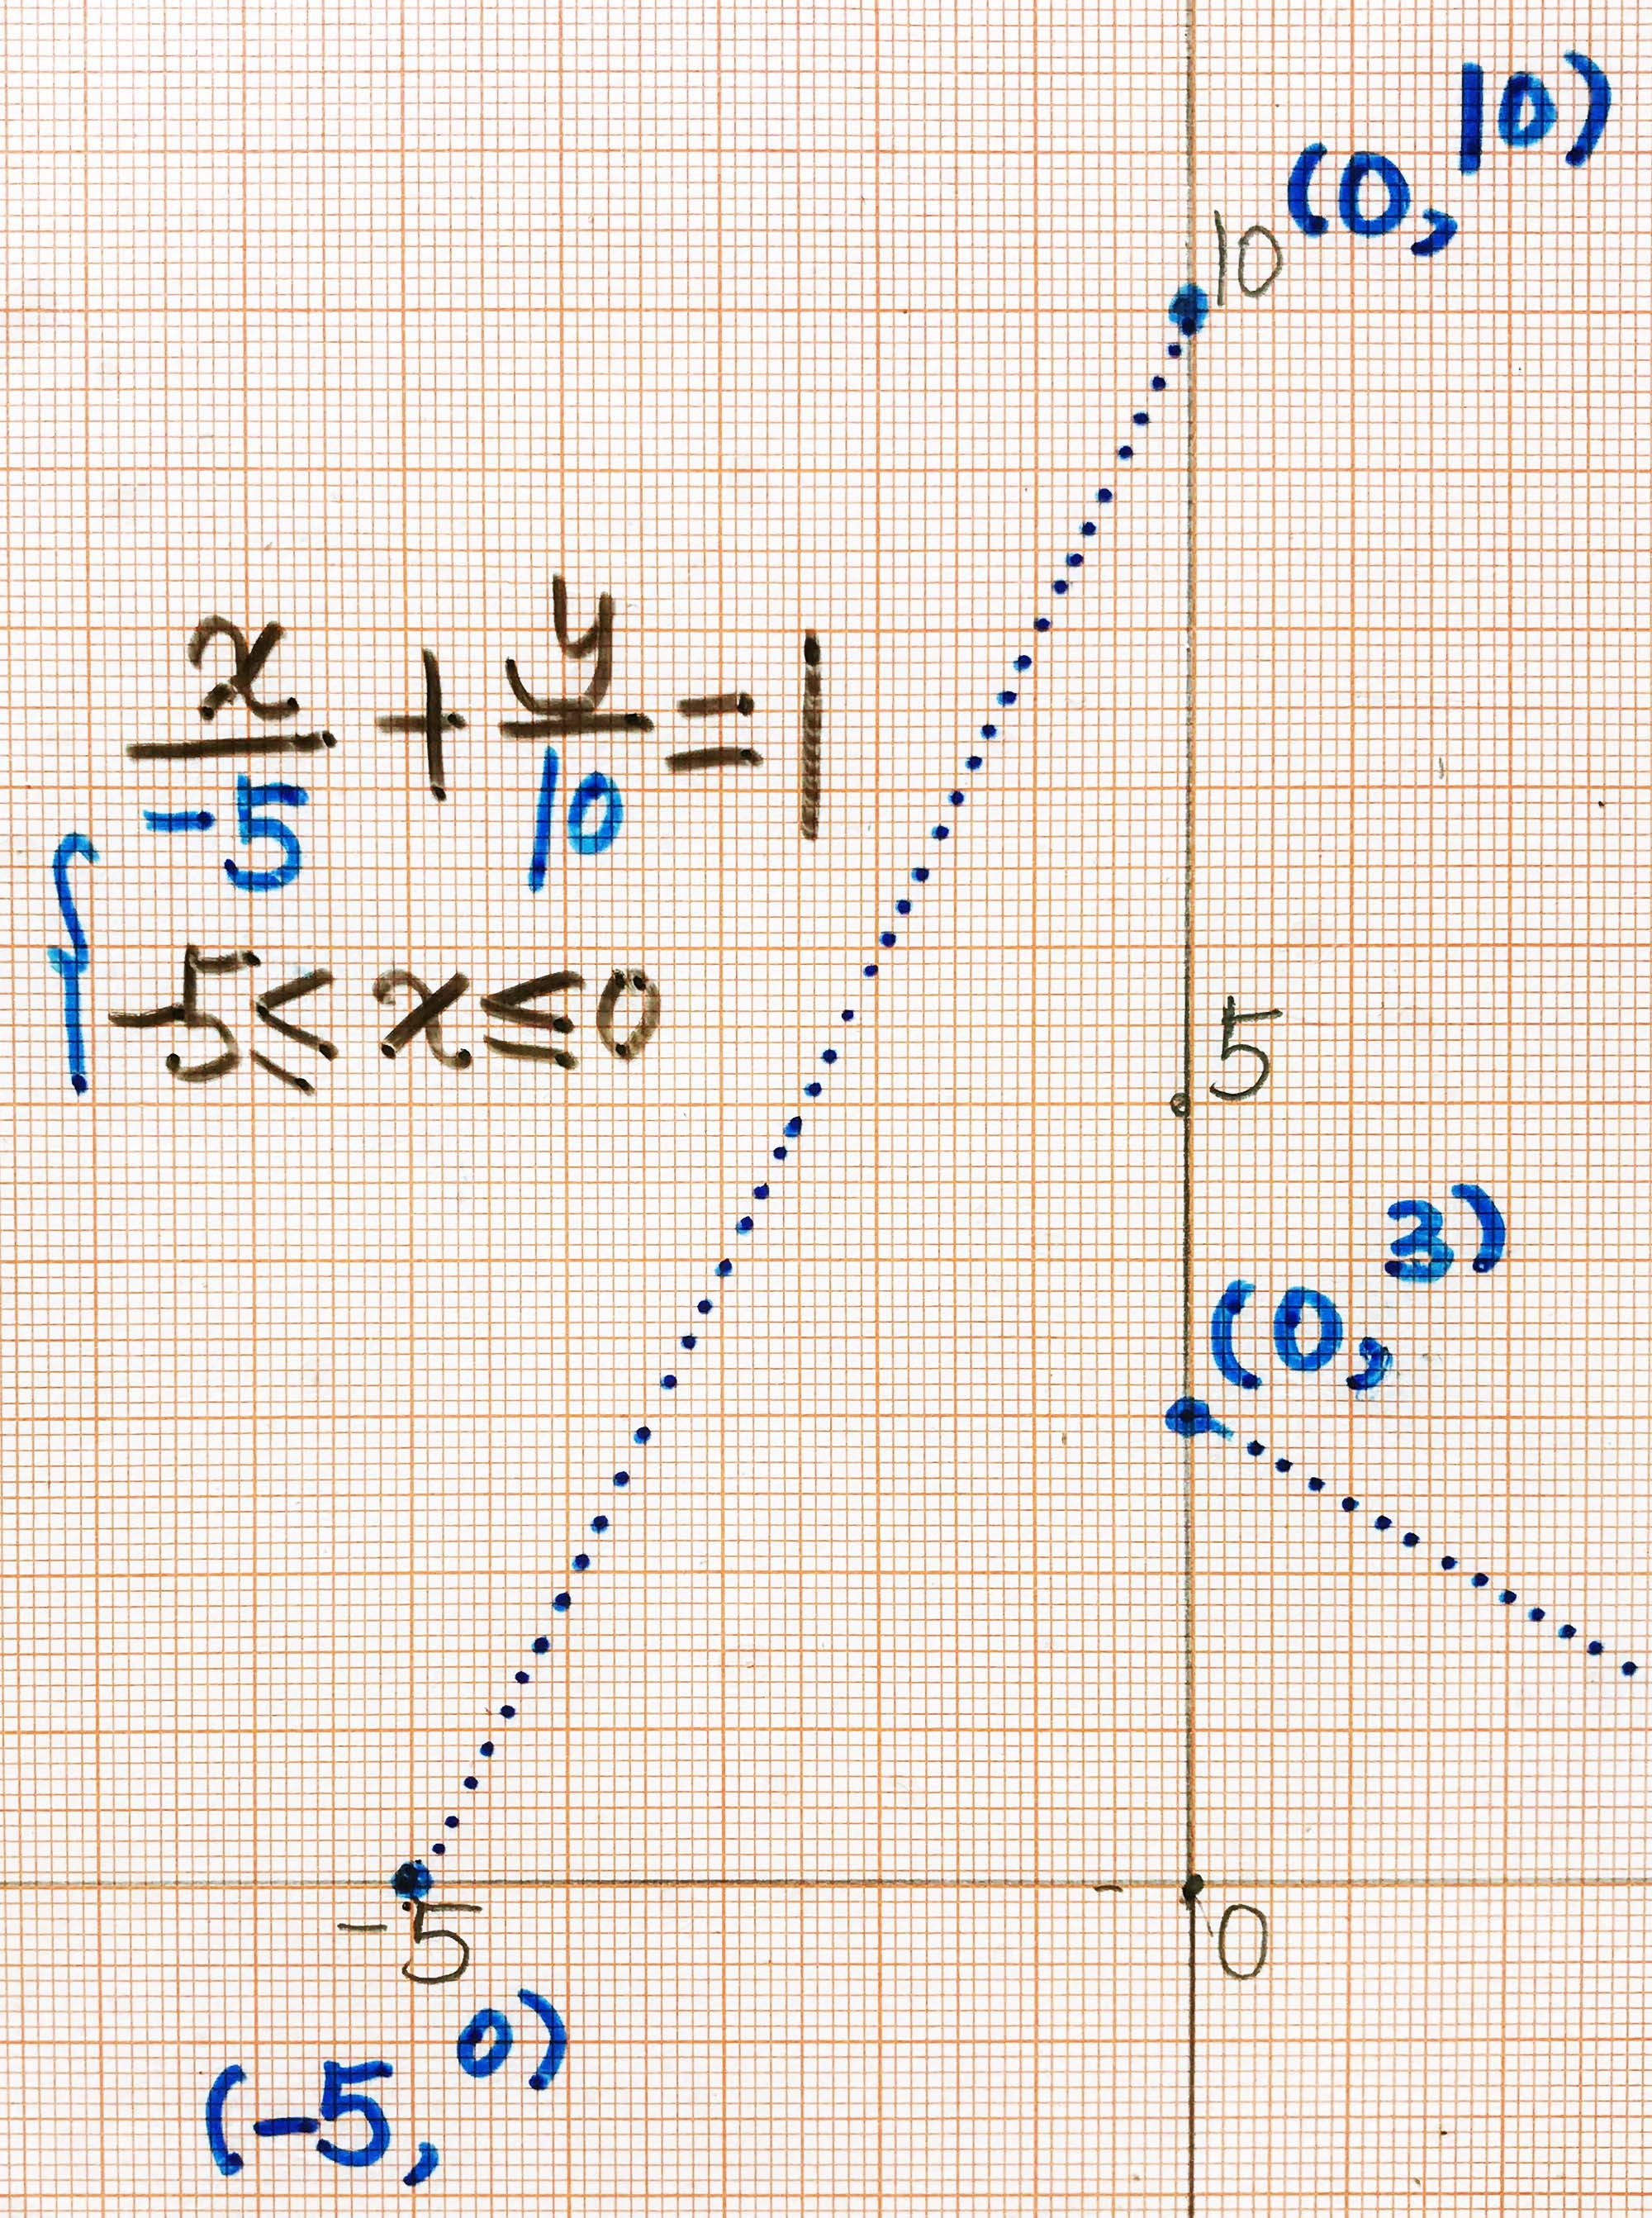 (0, 10)
10
x/-5 + y/10 = 1
-5 ≤ x ≤ 0
5
(0, 3)
-5
0
(-5, 0)